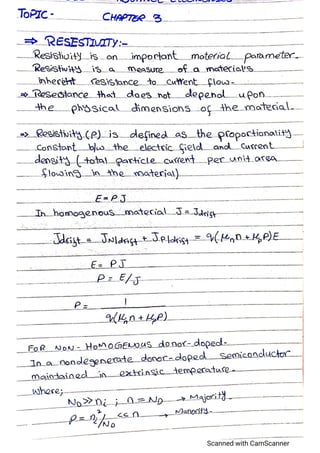 TOPIC - CHAPTER 3
⇒ RESESTIVITY:-
Resistivity is an important material parameter.
Resistivity is a measure of a materials
Inherent resistance to current flow.
⇒ Resestance that does not depend upon
the physical dimensions of the material.
⇒ Resistivity (ρ) is defined as the proportionality
constant b/w the electric field and current
density (total particle current per unit area
flowing in the material)
E = ρJ
In homogenous material J = Jdrift
Jdrift = JN|drift + JP|drift = q(μn n + μp P)E
E = ρJ
ρ = E/J
ρ = 1 / q(μn n + μp P)
FOR NON-HOMOGENOUS donor-doped-
In a nondegenerate donor-doped semiconductor
maintained in extrinsic temperature.
where;
ND >> ni ; n = ND → Majority
P = ni²/ND << n → Minority.
Scanned with CamScanner